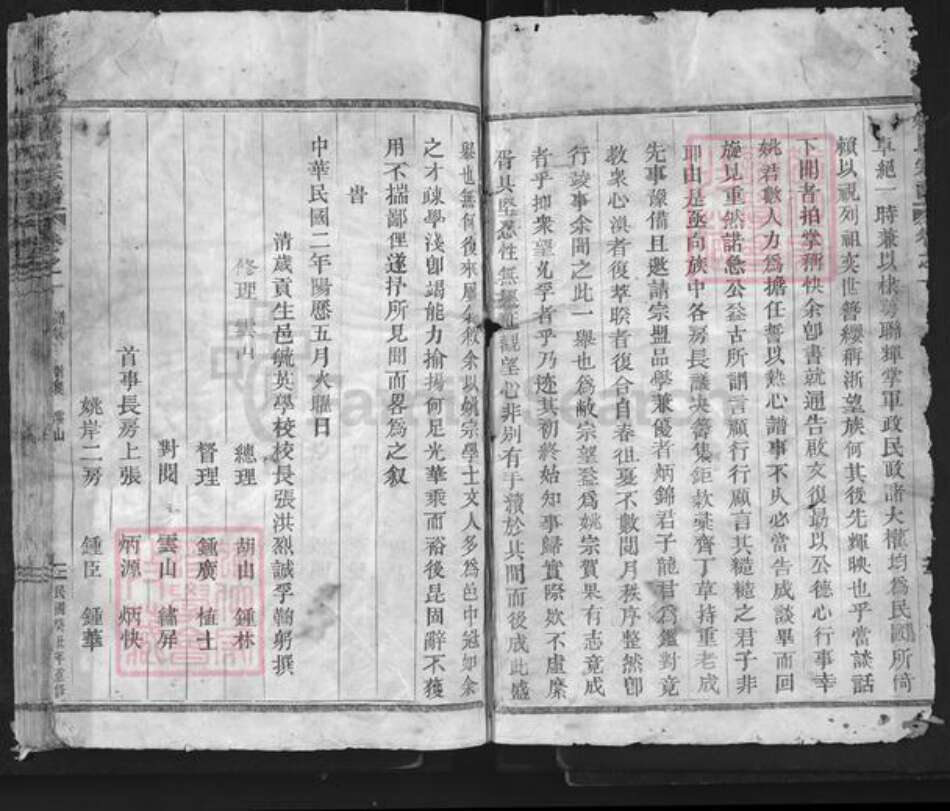 卓絕一時兼以棣萼聯輝掌軍政民政諸大權均爲民國所倚
賴以視列祖奕世簪纓稱浙望族何其後先輝映也乎當談話
下開者拍掌稱快余卽書就通告啟文復勗以公德心行事幸
姚君數人力爲擔任誓以熱心譜事不火必當告成談畢而回
旋見重然諾急公益古所謂言顧行行顧言其慥慥之君子非
耶由是亟向族中各房長議決籌集鉅款棻齊丁草持重老成
先事豫備且邀請宗盟品學兼優者炳錦君子龍君爲鑑對竟
教衆心渙者復萃睽者復合自春徂夏不數閱月秩序整然卽
行竣事余聞之此一舉也爲敝宗望益爲姚宗賀果有志竟成
者乎抑衆望允孚者乎乃迹其初終始知事歸實際欵不虛縻
胥其堅忍性無觀望心非別有手續於其間而後成此盛
舉也無何後來屬余叙余以姚宗學士文人多爲邑中冠如余
之才疎學淺卽竭能力揄揚何足光華乘而裕後昆固辭不獲
用不揣鄙俚遂抒所見聞而畧爲之叙
旹
中華民國二年陽歷五月火曜日
清歲貢生邑毓英學校校長張洪烈誠孚鞠躬撰
修理 雲山
總理 胡山 鍾林
督理 鍾廣 植士
對閱 雲山 繡屏
首事長房上張 炳源 炳快
姚岸二房 鍾臣 鍾華
民國癸丑年重修